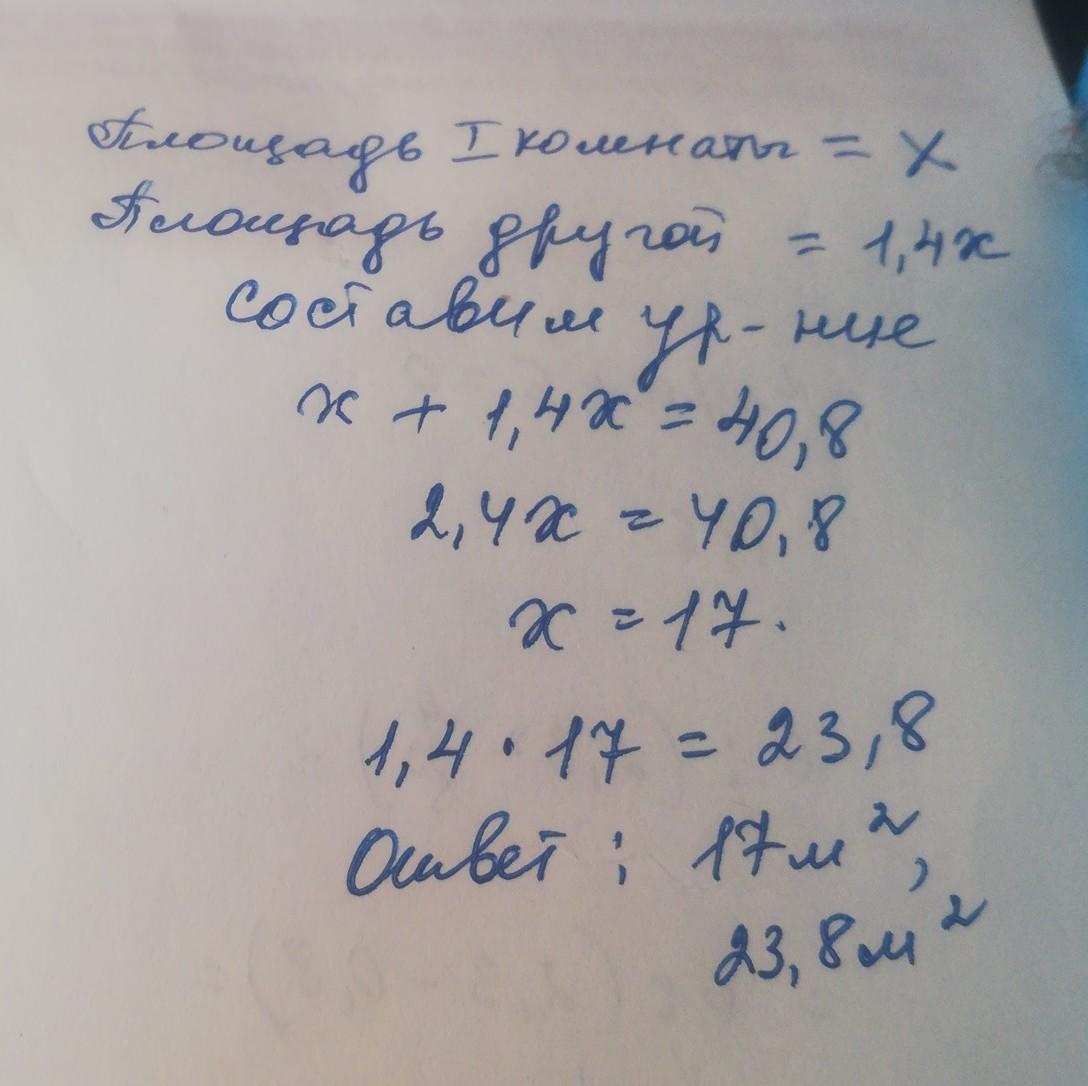 Площадь I комнаты = x
Площадь другой = 1,4x
составим ур-ние
x + 1,4x = 40,8
2,4x = 40,8
x = 17.
1,4 · 17 = 23,8
Ответ : 17м²,
23,8м²